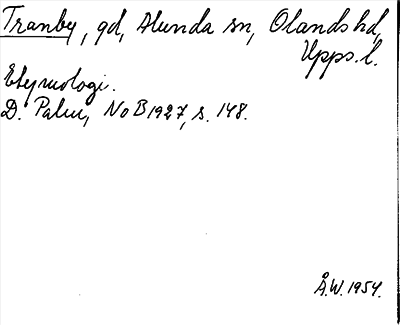 Tranby, gd, Alunda sn, Olands hd,
Upps. l.
Etymologi.
D. Palm, NoB 1927, s. 148.
Å.W. 1954.